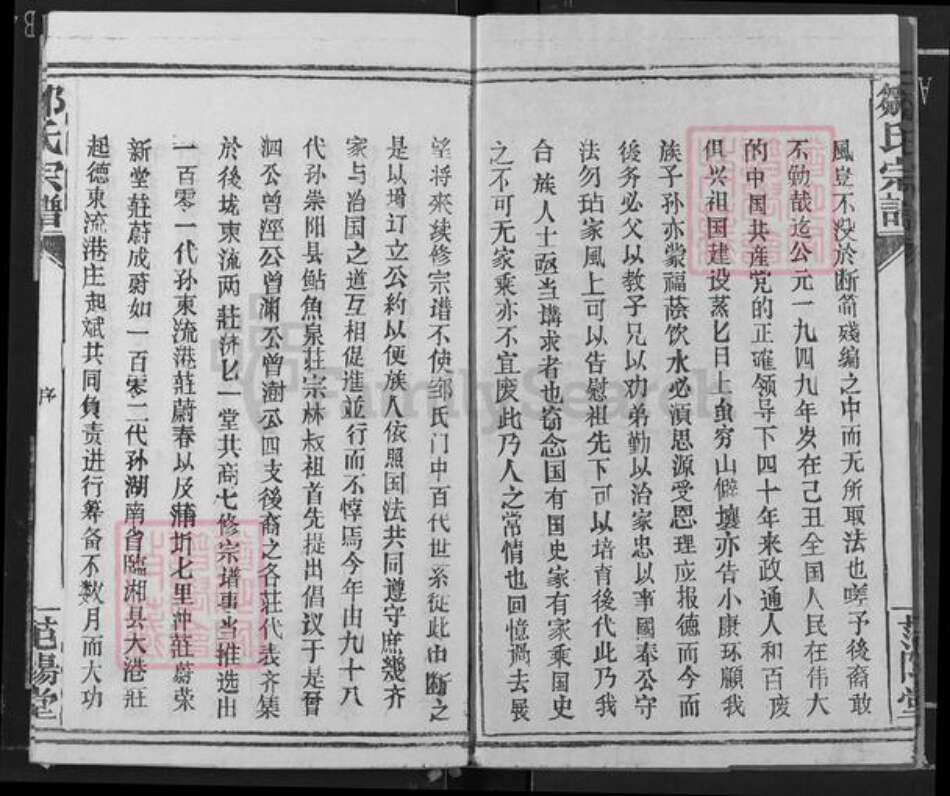 鄒氏宗譜
風豈不沒於断简殘編之中而无所取法也嗟予後裔敢
不勉哉迄公元一九四九年岁在己丑全国人民在伟大
的中国共産党的正確领导下四十年来政通人和百废
俱兴祖国建设蒸匕日上虽穷山僻壤亦告小康环顧我
族子孙亦蒙福荫饮水必湏思源受恩理应报德而今而
後务必父以教子兄以劝弟勤以治家忠以事國奉公守
法勿玷家風上可以告慰祖先下可以培育後代此乃我
合族人士亟当講求者也窃念国有国史家有家乘国史
之不可无家乘亦不宜废此乃人之常情也回憶過去展
范陽堂
望将來续修宗谱不使邹氏门中百代世系從此由断之
是以增订立公約以便族人依照国法共同遵守庶幾齐
家与治国之道互相促進並行而不悖焉今年由九十八
代孙崇阳县鲇魚泉荘宗林叔祖首先提出倡议于是晉
泗公曾溼公曾渊公曾澍公四支後裔之各荘代表齐集
於後垅東流两荘济匕一堂共商七修宗谱事当推选出
一百零一代孙東流港荘蔚春以及蒲圻七里冲荘蔚荣
新堂荘蔚成蔚如一百零二代孙湖南省臨湘县大港荘
起德東流港庄起斌共同負责进行筹备不数月而大功
邹氏宗譜
序
范陽堂
FamilySearch